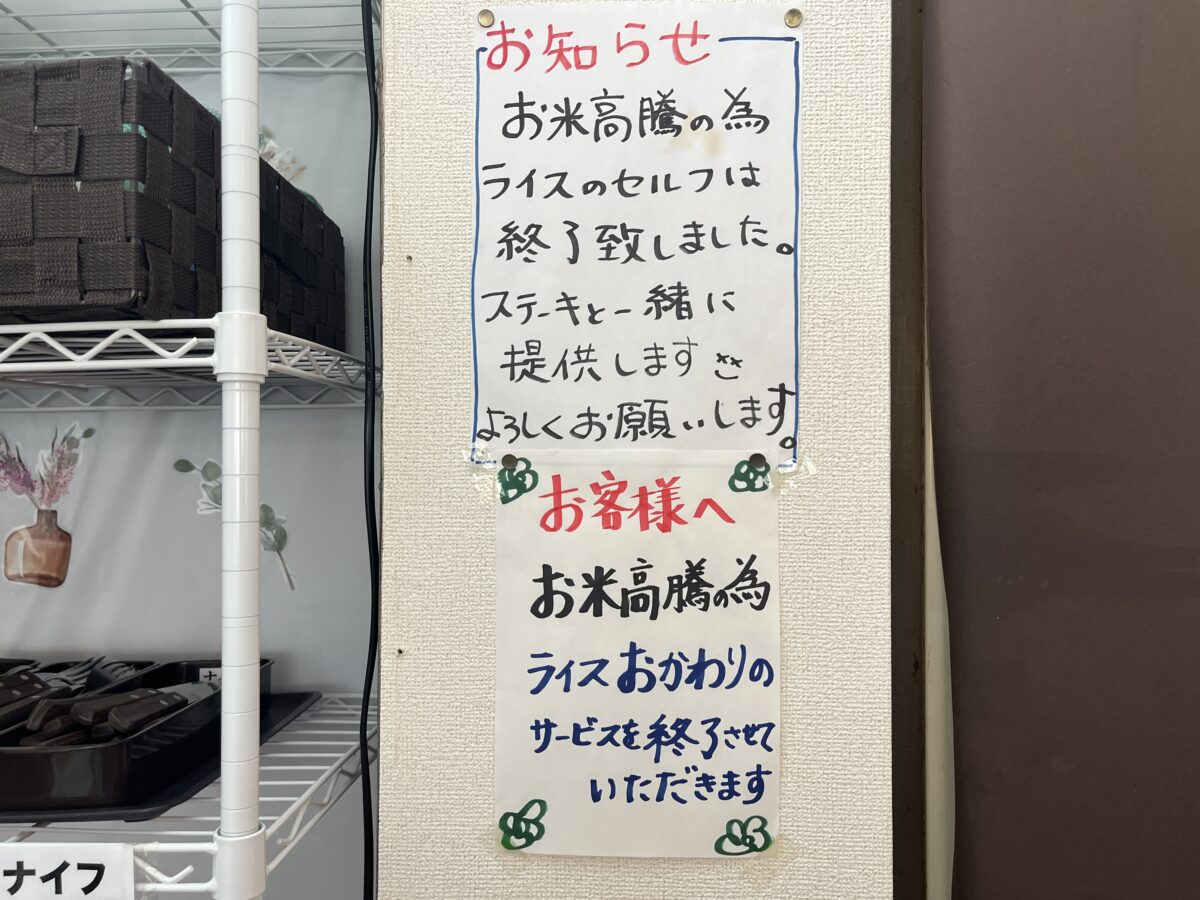 お知らせ
お米高騰の為
ライスのセルフは
終了致しました。
ステーキと一緒に
提供します
よろしくお願いします。
お客様へ
お米高騰の為
ライスおかわりの
サービスを終了させて
いただきます
ナ
ナイフ